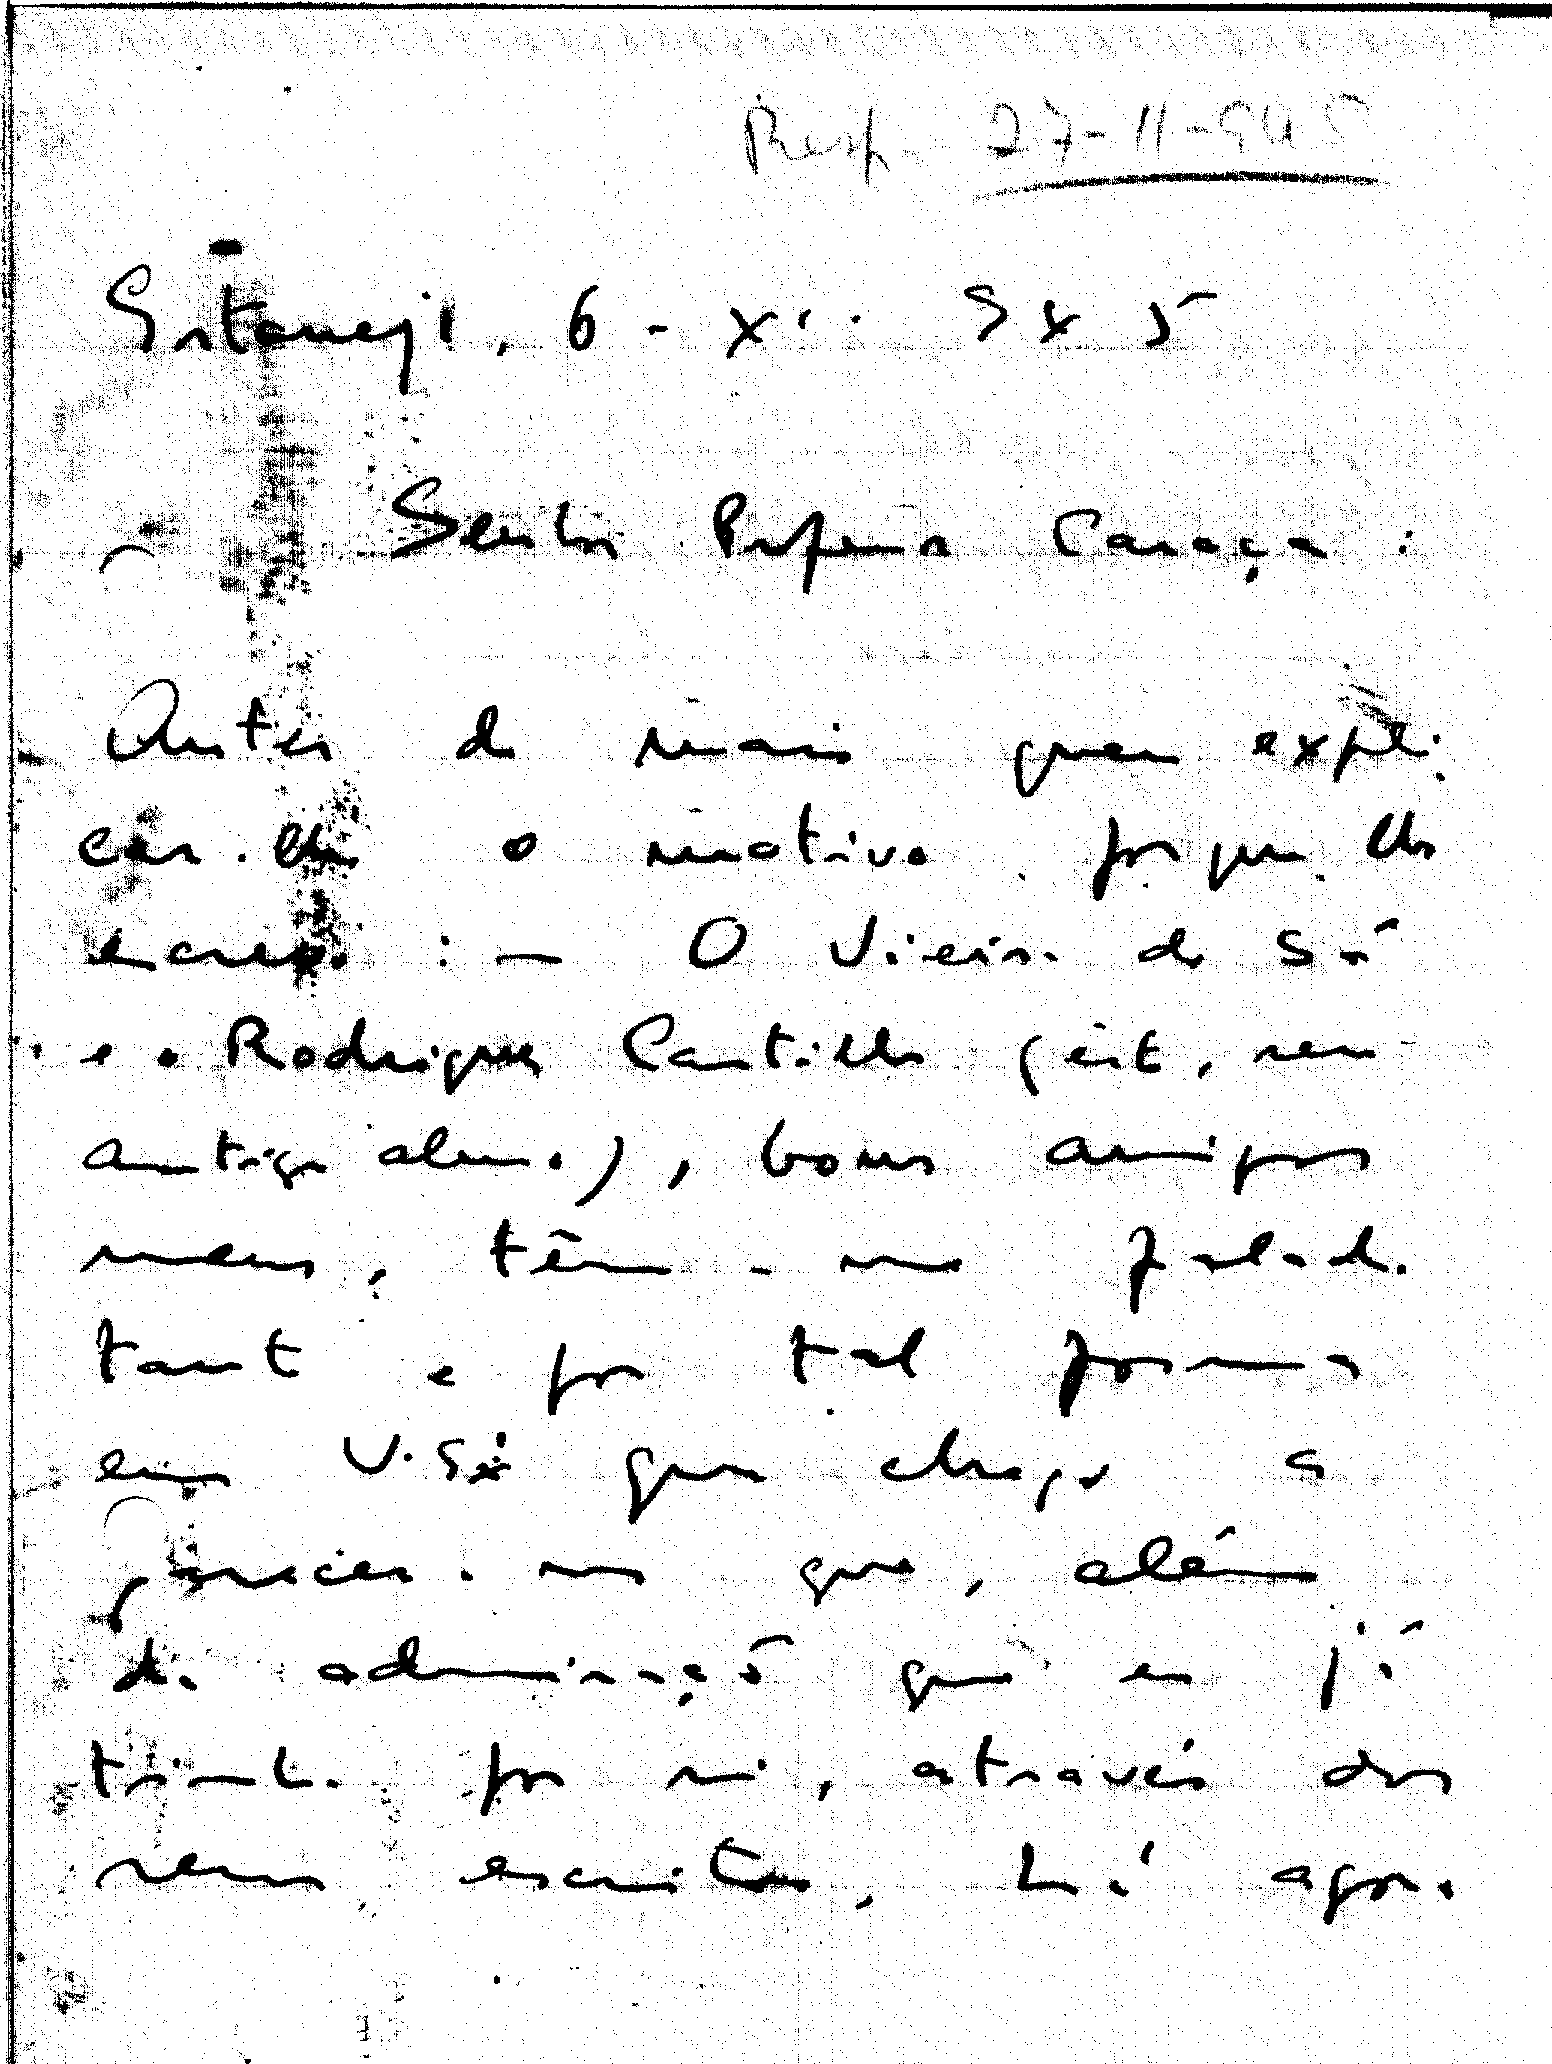 Resp. 27-11-945
Estarreja, 6 - XI. 945
Senhor Professor Caraça:
Antes de mais quero expli-
car-lhe o motivo porque lhe
escrevo: — O Vieira de Sá
e o Rodrigues Castilho (êste, seu
antigo aluno), bons amigos
meus, têm-me falado
tanto e por tal forma
em V. que chego a
parecer-me que, além
da admiração que eu já
tinha por si, através dos
seus escritos, há agora